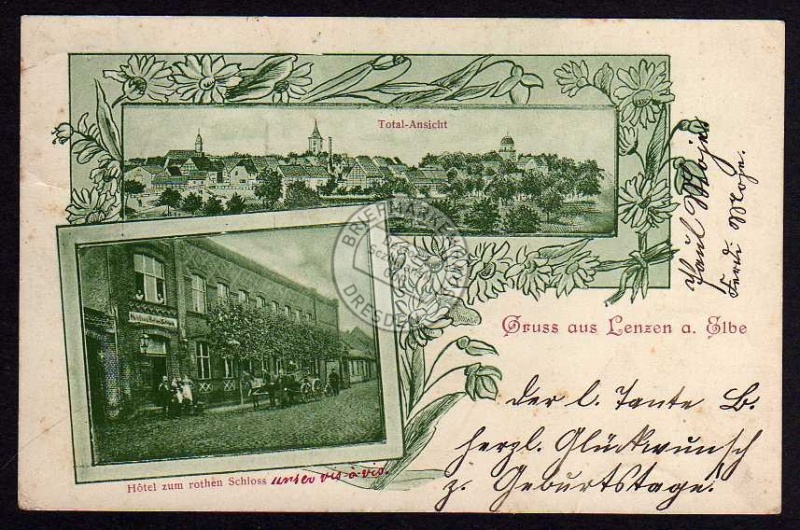 Total-Ansicht
Paul Mojes
Ferdi Moje.
BRIEFMARKEN
DRESDEN
Gruss aus Lenzen a. Elbe
der l. Tante B.
herzl. Glückwunsch
z. Geburtstage!
Hôtel zum rothen Schloss unser vis-à-vis.